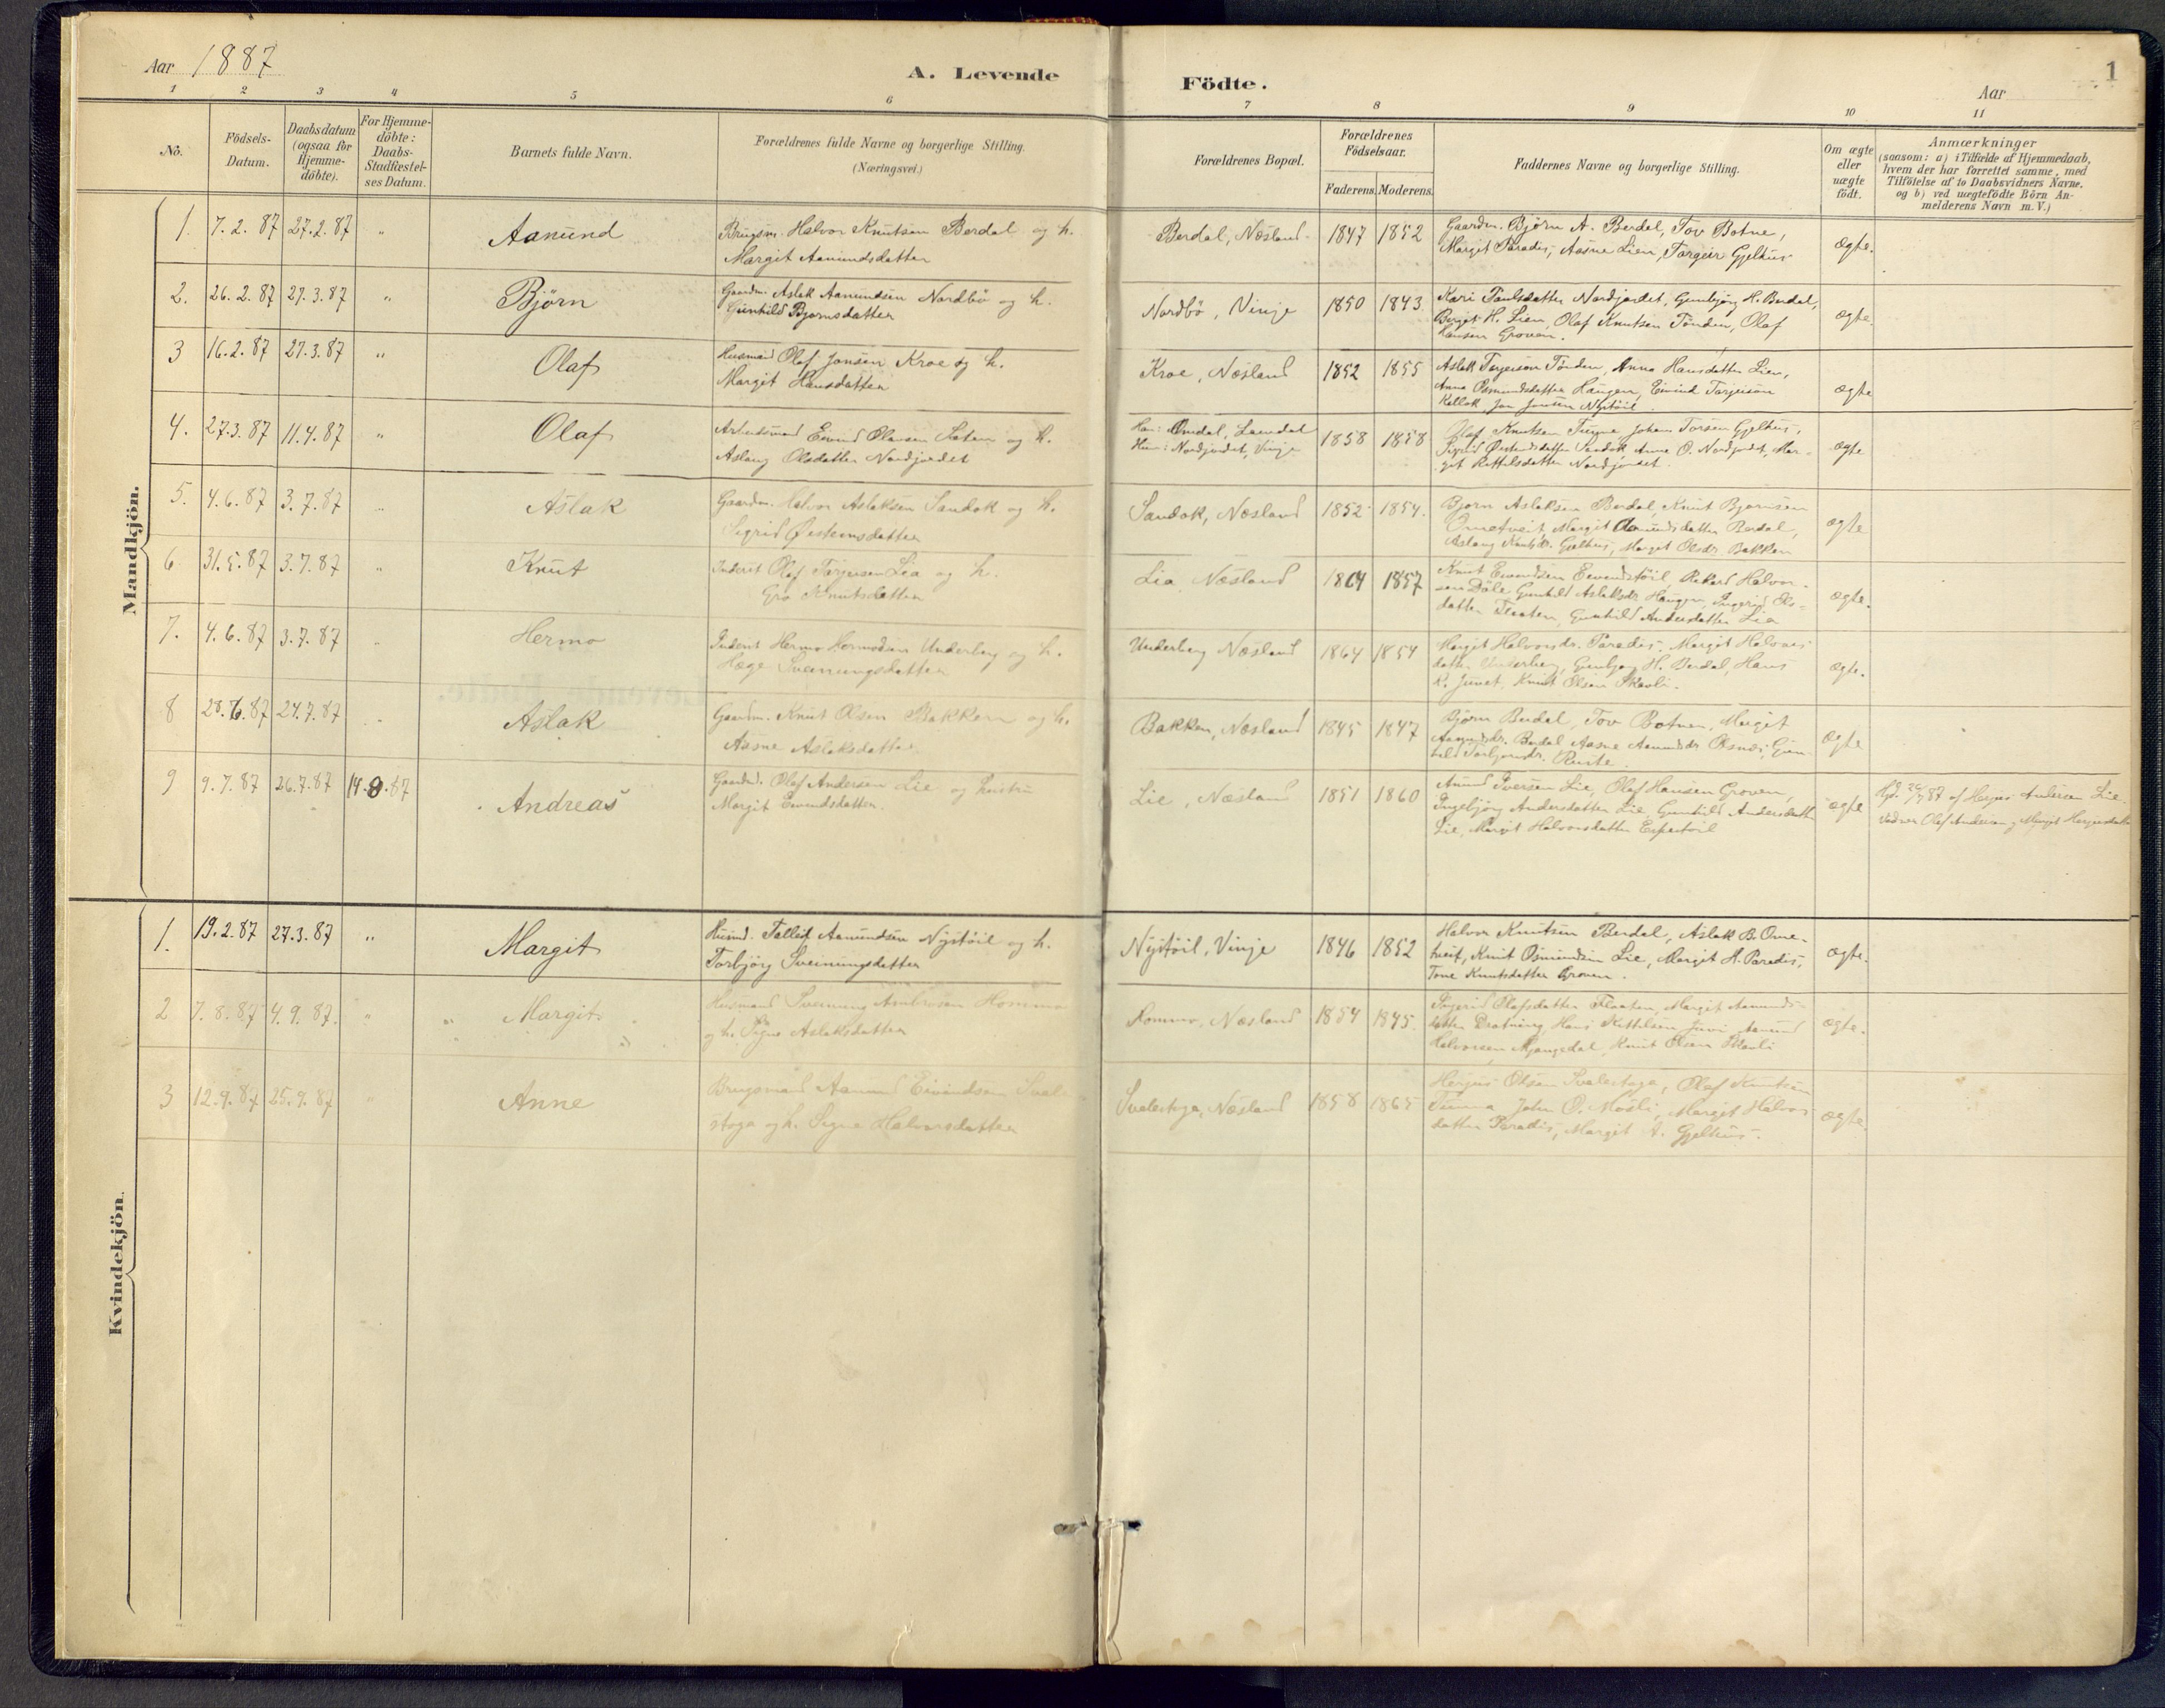 Aar 1887
A. Levende Födte.
Aar
1
1 2 3 4 5 6 7 8 9 10 11
No.
Födsels-Datum.
Daabsdatum (ogsaa for Hjemme-döbte).
For Hjemme-döbte: Daabs-Stadfæstel-ses Datum.
Barnets fulde Navn.
Forældrenes fulde Navne og borgerlige Stilling. (Næringsvei.)
Forældrenes Bopæl.
Forældrenes Födselsaar.
Faderens. Moderens.
Faddernes Navne og borgerlige Stilling.
Om ægte eller uægte födt.
Anmærkninger
(saasom: a) i Tilfælde af Hjemmedaab,
hvem der har forrettet samme, med
Tilföielse af to Daabsvidners Navne,
og b) ved uægtefödte Börn An-
melderens Navn m. V.)
Mandkjön.
1. 7.2.87 27.2.87 " Aanund
Brugsm. Halvor Knutsen Berdal og h.
Margit Aanundsdatter
Berdal, Næsland 1847 1852
Gaardm. Björn A. Berdal, Tov Botne,
Margit Paradis, Aasne Lien, Torgeir Gjelhus
ægte.
2. 26.2.87 27.3.87 " Björn
Gaardm. Aslak Aanundsen Nordbö og h.
Gunhild Bjornsdatter
Nordbö, Vinje 1850 1843
Kari Paulsdatter Nordjordet, Gunbjörg H. Berdal,
Berget H. Lien, Olaf Knutsen Tönden, Olaf
Hansen Groven.
ægte.
3 16.2.87 27.3.87 " Olaf
Husmand Olaf Jonsen Kroe og h.
Margit Hansdatter
Kroe, Næsland 1852 1855
Aslak Torjerson Tönden, Anna Hansdatter Lien,
Anna Osmundsdatter Haugen, Eivind Torjerson
Kallok, Jon Jonsen Nystöil.
ægte
4. 27.3.87 11.4.87 " Olaf
Arbeidsmand Eivind Olavsen og h.
Aslaug Olsdatter Nordjordet
Han: Omdal, Laurdal
Hun: Nordjordet, Vinje
1858 1858
Olaf Knutsen, Johans Torsen Gjelhus,
Sigrid Östensdatter Sandok, Anne O. Nordjordet, Mar-
git Kettilsdatter Nordjordet.
ægte
5. 4.6.87 3.7.87 " Aslak
Gaardm. Halvor Aslaksen Sandok og h.
Sigrid Øisteinsdatter
Sandok, Næsland 1852 1854.
Bjorn Aslaksen Berdal, Knut Bjornsen
Ornetveit, Margit Aanundsdatter Berdal,
Aslaug Knutsdr. Gjelhus, Margit Olsdr. Bakken
ægte
6 31.5.87 3.7.87 " Knut
Inderst Olaf Torjersen Lia og h.
Gro Knutsdatter
Lia Næsland 1864 1857
Knut Eivendsen Eivendstöil, Rikard Halvor-
sen Döle Gunhild Aslaksdr Haugen, Ingerid Ols-
datter Flaaten, Gunhild Andersdatter Lia
ægte.
7. 4.6.87 3.7.87 " Hermo
Inderst Hermo Hermodsen Underberg og h.
Hæge Sveinungsdatter
Underberg Næsland 1864 1854
Margit Halvorsdr. Paradis, Margit Halvors
datter Underberg, Gunbjorg H. Berdal, Hans
K. Juvet, Knut Olsen Skavli.
ægte.
8 28.6.87 24.7.87 Aslak
Gaardm. Knut Olsen Bakken og h.
Aasne Aslaksdatter
Bakken, Næsland 1845 1847
Björn Berdal, Tov Botnen, Margit
Aanundsdr. Berdal Aasne Aanundsdr Gun-
hild Torbjornsdr. Ruste.
ægte
9 9.7.87 26.7.87 14.8.87 Andreas
Gaardm. Olaf Andersen Lie og hustru
Margit Eivendsdatter.
Lie, Næsland 1851 1860
Anund Iversen Lie, Olaf Hansen Groven,
Ingebjörg Andersdatter Lie, Gunhild Andersdatter
Lie, Margit Halvorsdatter Espestöil
ægte
Hjd. 26/7 87 af Herjus Andersen Lie.
Vidner Olaf Andersen og Margit Herjusdatter
Kvindekjön.
1. 19.2.87 27.3.87 " Margit
Husmd. Tallef Aanundsen Nystöil og h.
Torbjörg Sveinungsdatter
Nystöil, Vinje 1846 1852
Halvor Knutsen Berdal, Aslak B. Orne-
tveit, Knut Osmundsen Lie, Margit A. Paradis,
Tone Knutsdatter Groven.
ægte.
2 7.8.87 4.9.87. " Margit
Husmand Sveinung Ambrosen Hommo
og h. Signe Aslaksdatter
Hommo, Næsland 1854 1845.
Ingerid Olafsdatter Flaaten, Margit Aanunds-
datter Dratning, Hans Kettilsen Juvi, Aanund
Halvorsen Mjaugedal, Knut Olsen Skavli
ægte.
3 12.9.87 25.9.87 " Anne
Brugsmand Aanund Eivindsen Svale-
stoga og h. Signe Halvorsdatter
Svalestoga, Næsland 1858 1865
Herjus Olsen Svalestoga, Olaf Knutsen
John O. Mosli, Margit Halvors
datter Paradis, Margit A. Gjelhus.
ægte.